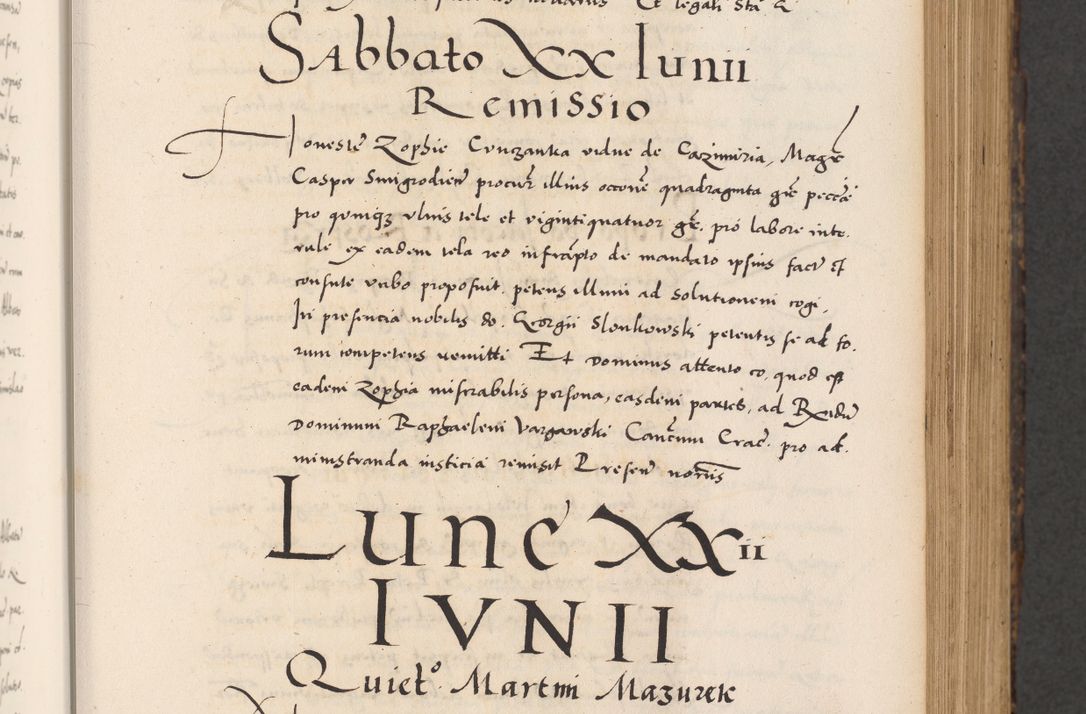 Sabbato XX Iunii
Remissio
Honeste Zophie Cunczanka vidue de Cazimiria, Magr
Casper Smigrodien procur illius occone quadraginta gr pecce
pro quinqz ulnis tele et vigintiquatuor gr. pro labore inte.
rule ex eadem tela reo infrapto de mandato ipsius fact et
consute verbo proposuit. petens illum ad solutionem cogi,
In presencia nobilis do. Georgii Slonkowski petentis se ad fo.
rum competens remitti Et Dominus attento eo, quod est
eadem Zophia miserabilis persona, easdem partes, ad Rndu
Dominum Raphaelem Vargawski Cancum Crac. pro ad.
ministranda iusticia remisit Presen noriis
Lune XXii
IVNII
Quieto. Martini Mazurek